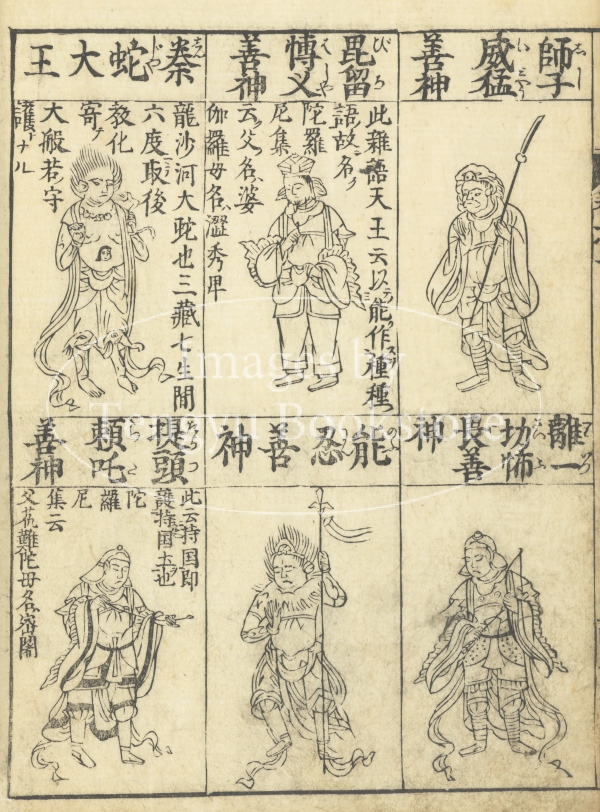 師子
威猛
善神
毘留
博义
善神
此雜語天王云以能作種種
語故名
陀羅
尼集
云父名婆
伽羅母名澀秀早
秦蛇大王
龍沙河大蛇也三藏七生間
六度取後
教化
寄ナ
大般若守
護ナル
離一
切怖
畏善
神
能忍善神
提頭
頼吒
善神
此云持国即
護持国土也
陀
羅
尼
集云
父名難陀母名密闍
Images by
Tengyu Bookstore